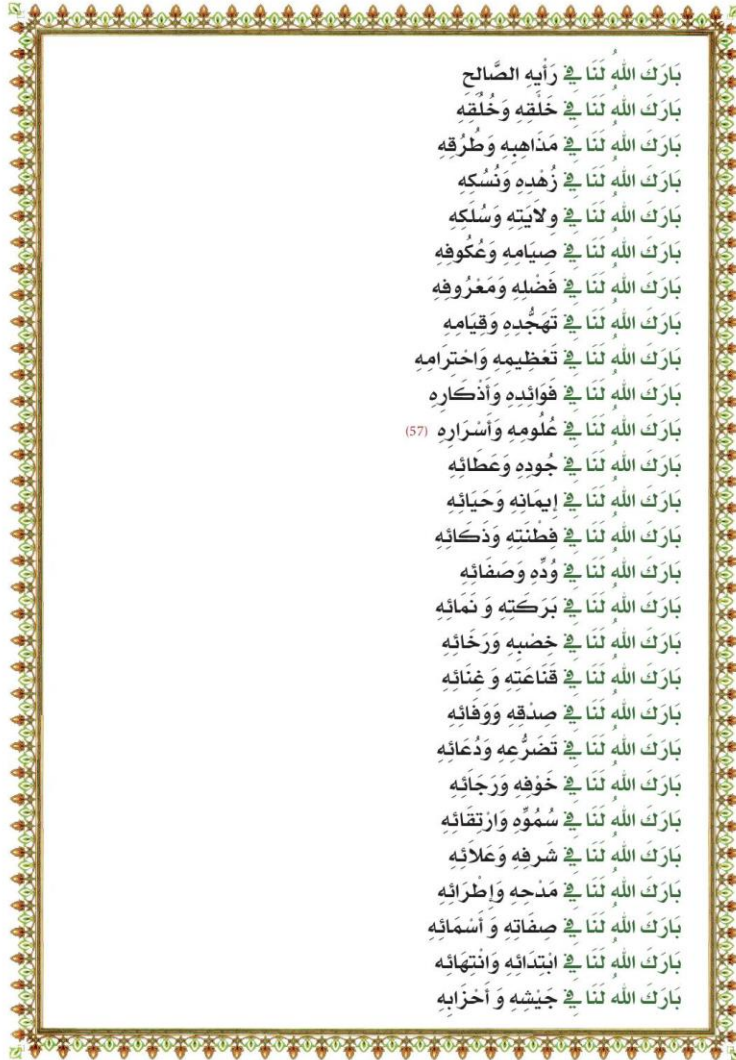 بَارَكَ اللهُ لَنَا فِي رَأْيِهِ الصَّالِحِ
بَارَكَ اللهُ لَنَا فِي خَلْقِهِ وَخُلُقِهِ
بَارَكَ اللهُ لَنَا فِي مَذَاهِبِهِ وَطُرُقِهِ
بَارَكَ اللهُ لَنَا فِي زُهْدِهِ وَنُسُكِهِ
بَارَكَ اللهُ لَنَا فِي وِلاَيَتِهِ وَسُلَكِهِ
بَارَكَ اللهُ لَنَا فِي صِيَامِهِ وَعُكُوفِهِ
بَارَكَ اللهُ لَنَا فِي فَضْلِهِ وَمَعْرُوفِهِ
بَارَكَ اللهُ لَنَا فِي تَهَجُّدِهِ وَقِيَامِهِ
بَارَكَ اللهُ لَنَا فِي تَعْظِيمِهِ وَاحْتِرَامِهِ
بَارَكَ اللهُ لَنَا فِي فَوَائِدِهِ وَأَذْكَارِهِ
بَارَكَ اللهُ لَنَا فِي عُلُومِهِ وَأَسْرَارِهِ (57)
بَارَكَ اللهُ لَنَا فِي جُودِهِ وَعَطَائِهِ
بَارَكَ اللهُ لَنَا فِي إِيمَانِهِ وَحَيَائِهِ
بَارَكَ اللهُ لَنَا فِي فِطْنَتِهِ وَذَكَائِهِ
بَارَكَ اللهُ لَنَا فِي وُدِّهِ وَصَفَائِهِ
بَارَكَ اللهُ لَنَا فِي بَرَكَتِهِ وَ نَمَائِهِ
بَارَكَ اللهُ لَنَا فِي خِصْبِهِ وَرَخَائِهِ
بَارَكَ اللهُ لَنَا فِي قَنَاعَتِهِ وَ غِنَائِهِ
بَارَكَ اللهُ لَنَا فِي صِدْقِهِ وَوَفَائِهِ
بَارَكَ اللهُ لَنَا فِي تَضَرُّعِهِ وَدُعَائِهِ
بَارَكَ اللهُ لَنَا فِي خَوْفِهِ وَرَجَائِهِ
بَارَكَ اللهُ لَنَا فِي سُمُوِّهِ وَارْتِقَائِهِ
بَارَكَ اللهُ لَنَا فِي شَرفِهِ وَعَلاَئِهِ
بَارَكَ اللهُ لَنَا فِي مَدْحِهِ وَإِطْرَائِهِ
بَارَكَ اللهُ لَنَا فِي صِفَاتِهِ وَ أَسْمَائِهِ
بَارَكَ اللهُ لَنَا فِي ابْتِدَائِهِ وَانْتِهَائِهِ
بَارَكَ اللهُ لَنَا فِي جَيْشِهِ وَ أَحْزَابِهِ